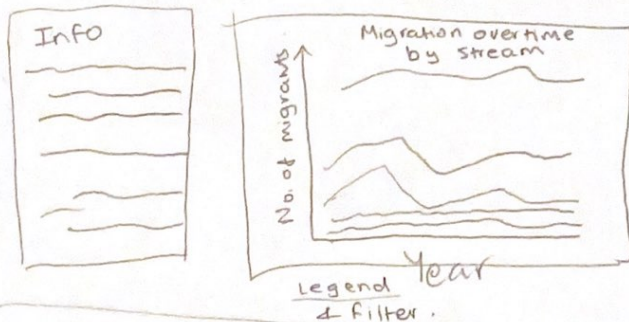 Info
Migration overtime
by stream
No. of migrants
Year
Legend
& filter.